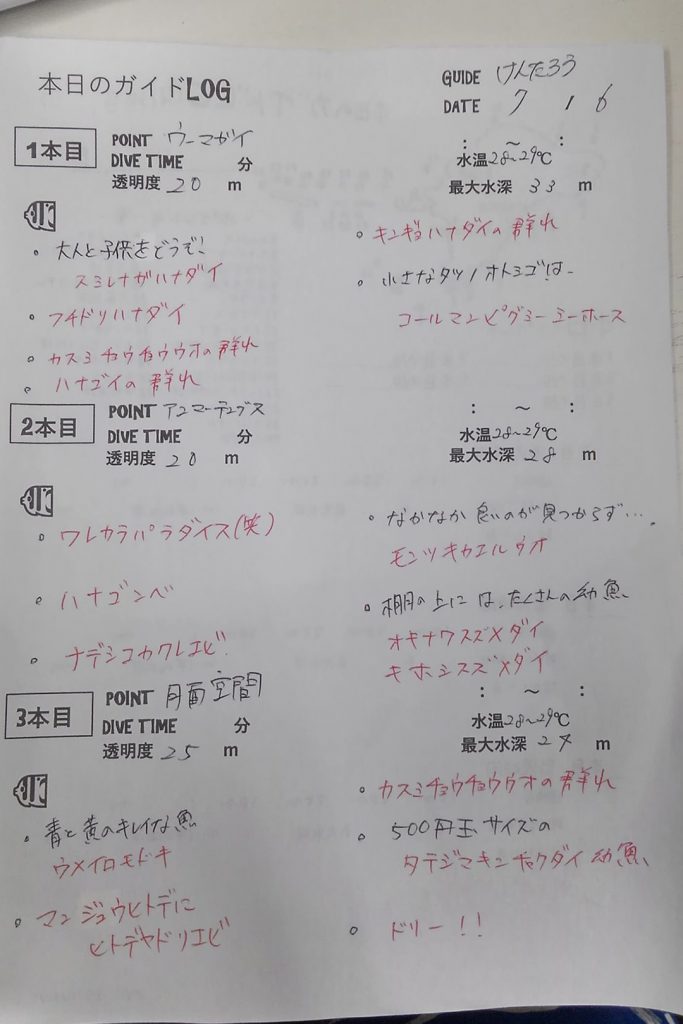 本日のガイドLOG
GUIDE けんたろう
DATE 7 / 6
1本目
POINT ウーマガイ
DIVE TIME 分
透明度 20 m
: ～ :
水温28~29℃
最大水深 33 m
・大人と子供をどうぞ!
スミレナガハナダイ
・フチドリハナダイ
・カスミチョウチョウウオの群れ
・ハナゴイの群れ
・キンギョハナダイの群れ
・小さなタツノオトシゴは…
コールマンピグミーシーホース
2本目
POINT アユマーチューブス
DIVE TIME 分
透明度 20 m
: ～ :
水温28~29℃
最大水深 28 m
・ワレカラパラダイス(笑)
・ハナゴンベ
・ナデシコカクレエビ
・なかなか良いのが見つからず…。
モンツキカエルウオ
・棚の上には、たくさんの幼魚
オキナワスズメダイ
キホシスズメダイ
3本目
POINT 月面空間
DIVE TIME 分
透明度 25 m
: ～ :
水温28~29℃
最大水深 24 m
・青と黄のキレイな魚
ウメイロモドキ
・マンジュウヒトデに
ヒトデヤドリエビ
・カスミチョウチョウウオの群れ
・500円玉サイズの
タテジマキンチャクダイ幼魚
・ドリー!!